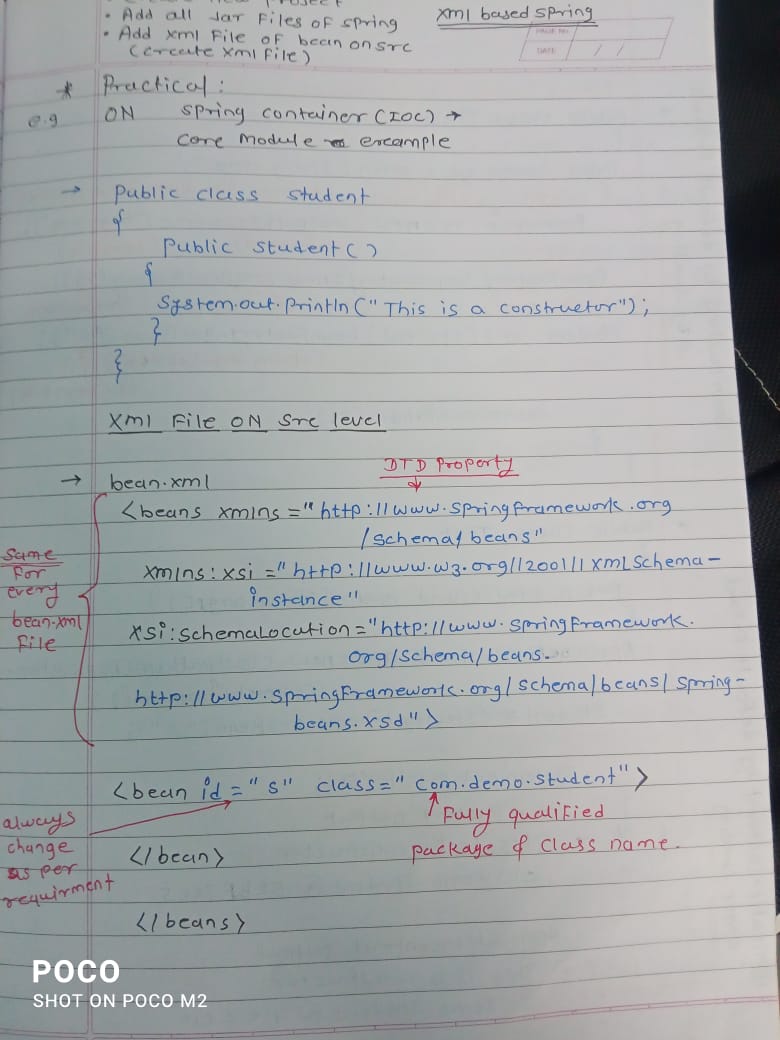 Project
• Add all Jar Files of spring
xml based spring
• Add xml File of bean on src
(create xml File)
PAGE No.
DATE / /
* Practical :
e.g ON spring container (IOC) →
core module excample
→ Public class student
{
Public student ( )
{
System.out.println (" This is a constructor");
}
}
Xml File ON Src level
→ bean.xml
DTD Property
<beans xmlns ="http://www.springframework.org
/schema/ beans"
xmlns : xsi ="http://www.w3.org//2001/1 XMLSchema-
instance"
xsi:schemaLocation="http://www.springframework.
org/schema/beans.
http://www.springframework.org/schema/beans/spring-
beans.xsd">
same
For
every
bean.xml
File
<bean id = " s" class=" com.demo.student">
always
change
as per
requirment
Fully qualified
package & class name.
</bean>
</beans>
POCO
SHOT ON POCO M2